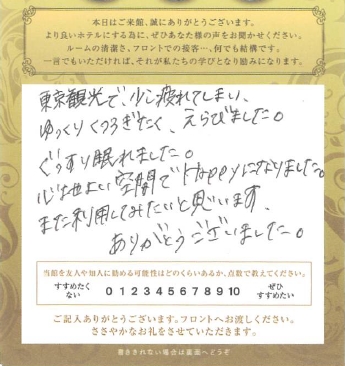 本日はご来館、誠にありがとうございます。
より良いホテルにする為に、ぜひあなた様の声をお聞かせください。
ルームの清潔さ、フロントでの接客…、何でも結構です。
一言でもいただければ、それが私たちの学びとなり励みになります。
東京観光で、少し疲れてしまい、
ゆっくりくつろぎたく、えらびました。
ぐっすり眠れました。
心地よい空間でHappyになりました。
また利用してみたいと思います。
ありがとうございました。
当館を友人や知人に勧める可能性はどのくらいあるか、点数で教えてください。
すすめたくない 0 1 2 3 4 5 6 7 8 9 10 ぜひすすめたい
ご記入ありがとうございます。フロントへお渡しください。
ささやかなお礼をさせていただきます。
書ききれない場合は裏面へどうぞ